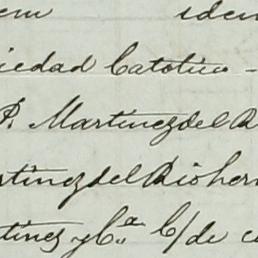 em iden
iedad Catolico -
P. Martinez del R
rtinez del Rio her
tinez y Cª. C/ de c